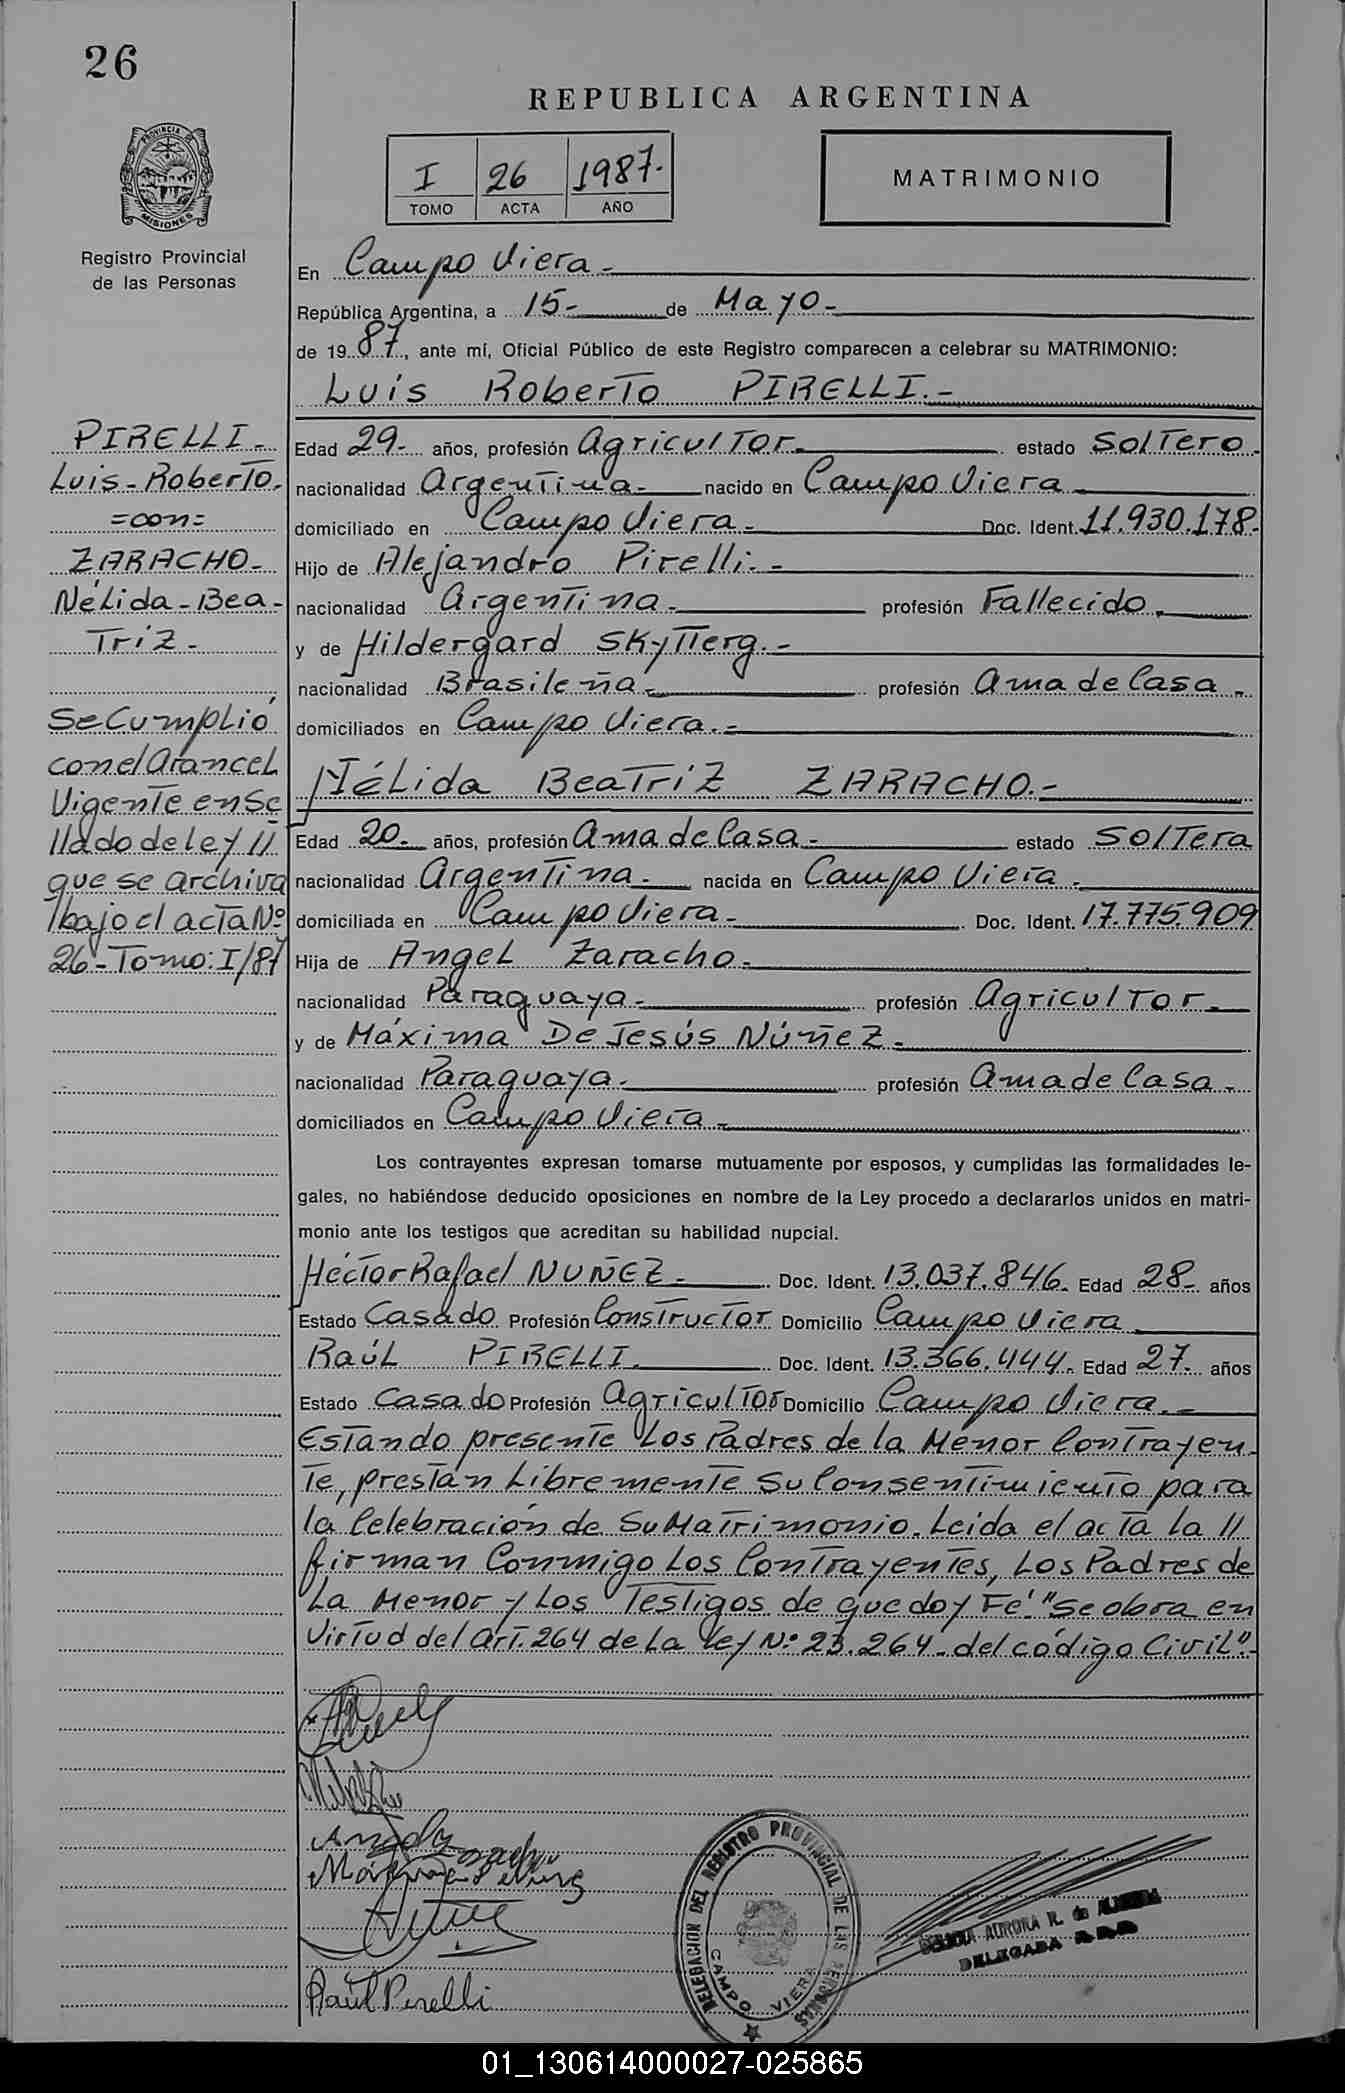 26
REPUBLICA ARGENTINA
PROVINCIA DE MISIONES
I 26 1987.
TOMO ACTA AÑO
MATRIMONIO
Registro Provincial
de las Personas
En Campo Viera.-
República Argentina, a 15- de Mayo.-
de 1987, ante mí, Oficial Público de este Registro comparecen a celebrar su MATRIMONIO:
Luis Roberto PIRELLI.-
PIRELLI-
Luis-Roberto.
=con=
ZARACHO-
Nélida-Bea-
Triz-
Se Cumplió
con el Arancel
Vigente en Se
llado de ley //
que se archiva
bajo el acta Nº
26-Tomo: I/87
Edad 29.- años, profesión Agricultor.- estado Soltero.
nacionalidad Argentina.- nacido en Campo Viera.-
domiciliado en Campo Viera.- Doc. Ident. 11.930.178.-
Hijo de Alejandro Pirelli.-
nacionalidad Argentina.- profesión Fallecido.-
y de Hildergard Skytterg.-
nacionalidad Brasileña.- profesión Ama de Casa.-
domiciliados en Campo Viera.-
Nélida Beatriz ZARACHO.-
Edad 20.- años, profesión Ama de Casa.- estado Soltera
nacionalidad Argentina.- nacida en Campo Viera.-
domiciliada en Campo Viera.- Doc. Ident. 17.775.909
Hija de Angel Zaracho.-
nacionalidad Paraguaya.- profesión Agricultor.-
y de Máxima De Jesús Núñez.-
nacionalidad Paraguaya.- profesión Ama de Casa.-
domiciliados en Campo Viera.-
Los contrayentes expresan tomarse mutuamente por esposos, y cumplidas las formalidades le-
gales, no habiéndose deducido oposiciones en nombre de la Ley procedo a declararlos unidos en matri-
monio ante los testigos que acreditan su habilidad nupcial.
Héctor Rafael NUÑEZ.- Doc. Ident. 13.037.846. Edad 28.- años
Estado Casado Profesión Constructor Domicilio Campo Viera
Raúl PIRELLI.- Doc. Ident. 13.366.444. Edad 27.- años
Estado Casado Profesión Agricultor Domicilio Campo Viera.-
Estando presente Los Padres de la Menor Contrayen-
te, prestan Libremente su Consentimiento para
la Celebración de Su Matrimonio. Leida el acta la //
firman Conmigo Los Contrayentes, Los Padres de
La Menor y Los Testigos de que doy Fé. "Se obra en
Virtud del Art. 264 de La Ley Nº 23.264- del código Civil".-
Raúl Pirelli
DELEGACION DEL REGISTRO PROVINCIAL DE LAS PERSONAS
CAMPO VIERA
AURORA R. de
DELEGADA
01_130614000027-025865